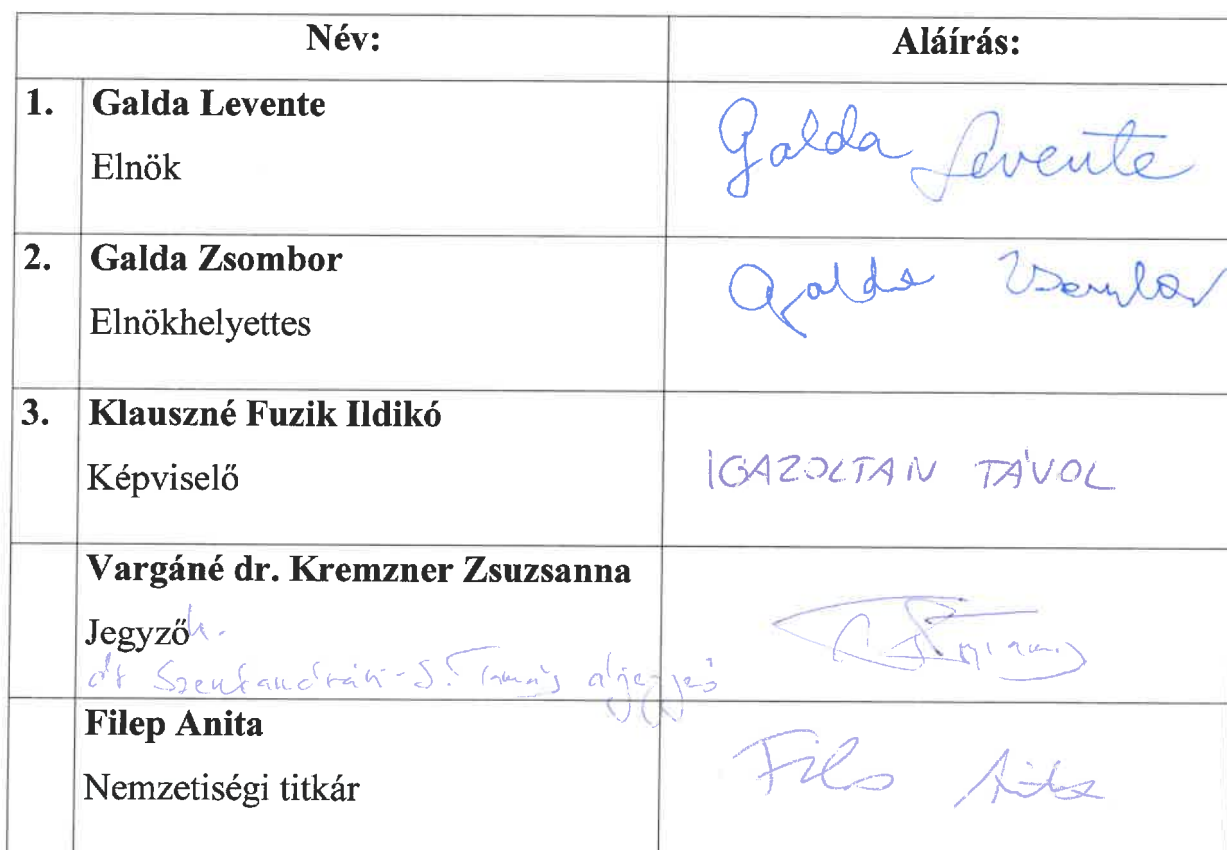 Név: Aláírás:
1. Galda Levente
Elnök
Galda Levente
2. Galda Zsombor
Elnökhelyettes
Galda Zsombor
3. Klauszné Fuzik Ildikó
Képviselő
IGAZOLTAN TÁVOL
Vargáné dr. Kremzner Zsuzsanna
Jegyző h.
dr Szentandrási-S. Tamás aljegyző
Filep Anita
Nemzetiségi titkár
Filep Anita